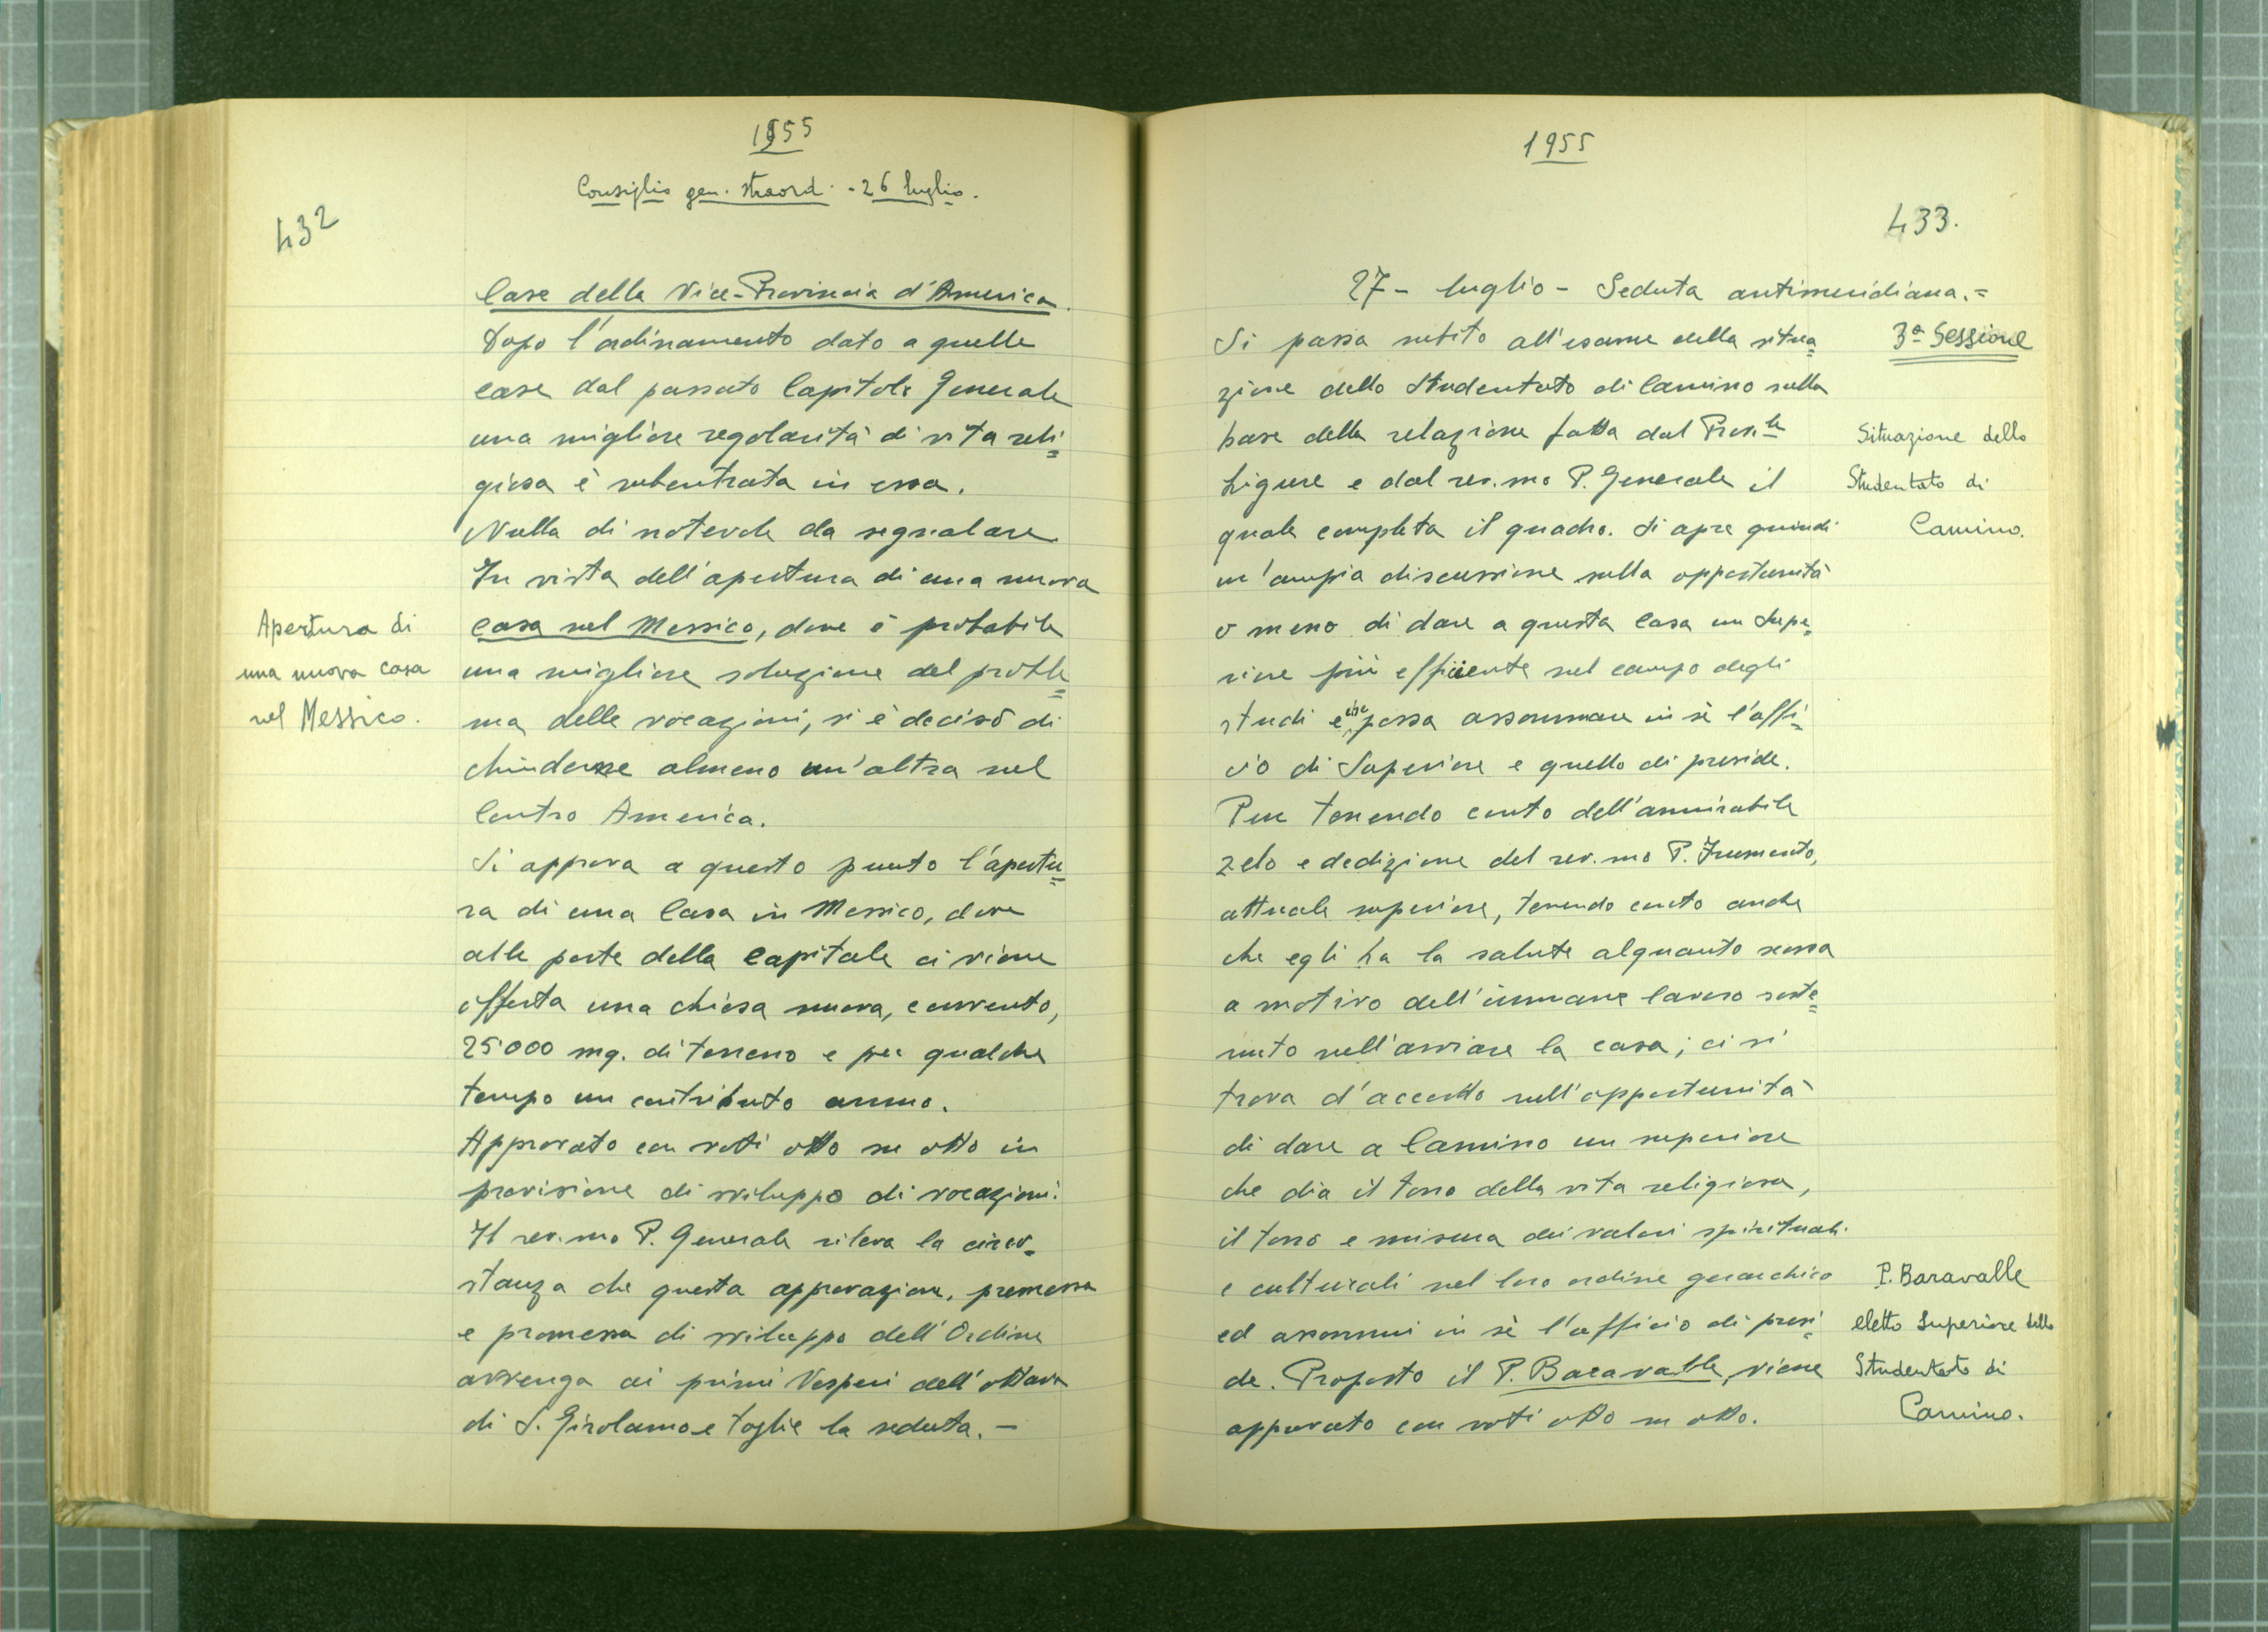 1955
Consiglio gen. straord. - 26 luglio.
432
Case della Vice-Provincia d'America.
Dopo l'ordinamento dato a quelle
case dal passato Capitolo Generale
una migliore regolarità di vita reli=
giosa è subentrata in essa.
Nulla di notevole da segnalare
In vista dell'apertura di una nuova
casa nel Messico, dove è probabile
una migliore soluzione del proble=
ma delle vocazioni, si è deciso di
chiuderne almeno un'altra nel
Centro America.
Si approva a questo punto l'apertu=
ra di una Casa in Messico, dove
alle porte della Capitale ci viene
offerta una chiesa nuova, convento,
25000 mq. di terreno e per qualche
tempo un contributo annuo.
Approvato con voti otto su otto in
previsione di sviluppo di vocazioni.
Il rev.mo P. Generale rileva la circo=
stanza che questa approvazione, premessa
e promessa di sviluppo dell'Ordine
avvenga ai primi Vesperi dell'ottava
di S. Girolamo e toglie la seduta. -
Apertura di
una nuova casa
nel Messico.
1955
433.
27 - luglio - Seduta antimeridiana. =
Si passa subito all'esame della situa=
zione dello Studentato di Camino sulla
base della relazione fatta dal Prov.le
Ligure e dal rev.mo P. Generale il
quale completa il quadro. Si apre quindi
un'ampia discussione sulla opportunità
o meno di dare a questa casa un Supe=
riore più efficiente nel campo degli
studi e che possa assommare in sè l'uffi=
cio di Superiore e quello di preside.
Pur tenendo conto dell'ammirabile
zelo e dedizione del rev.mo P. Frumento,
attuale superiore, tenendo conto anche
che egli ha la salute alquanto scossa
a motivo dell'immane lavoro soste=
nuto nell'avviare la casa; ci si
trova d'accordo sull'opportunità
di dare a Camino un superiore
che dia il tono della vita religiosa,
il tono e misura dei valori spirituali
e culturali nel loro ordine gerarchico
ed assommi in sè l'ufficio di presi=
de. Proposto il P. Baravalle, viene
approvato con voti otto su otto.
3ª Sessione
Situazione dello
Studentato di
Camino.
P. Baravalle
eletto Superiore dello
Studentato di
Camino.